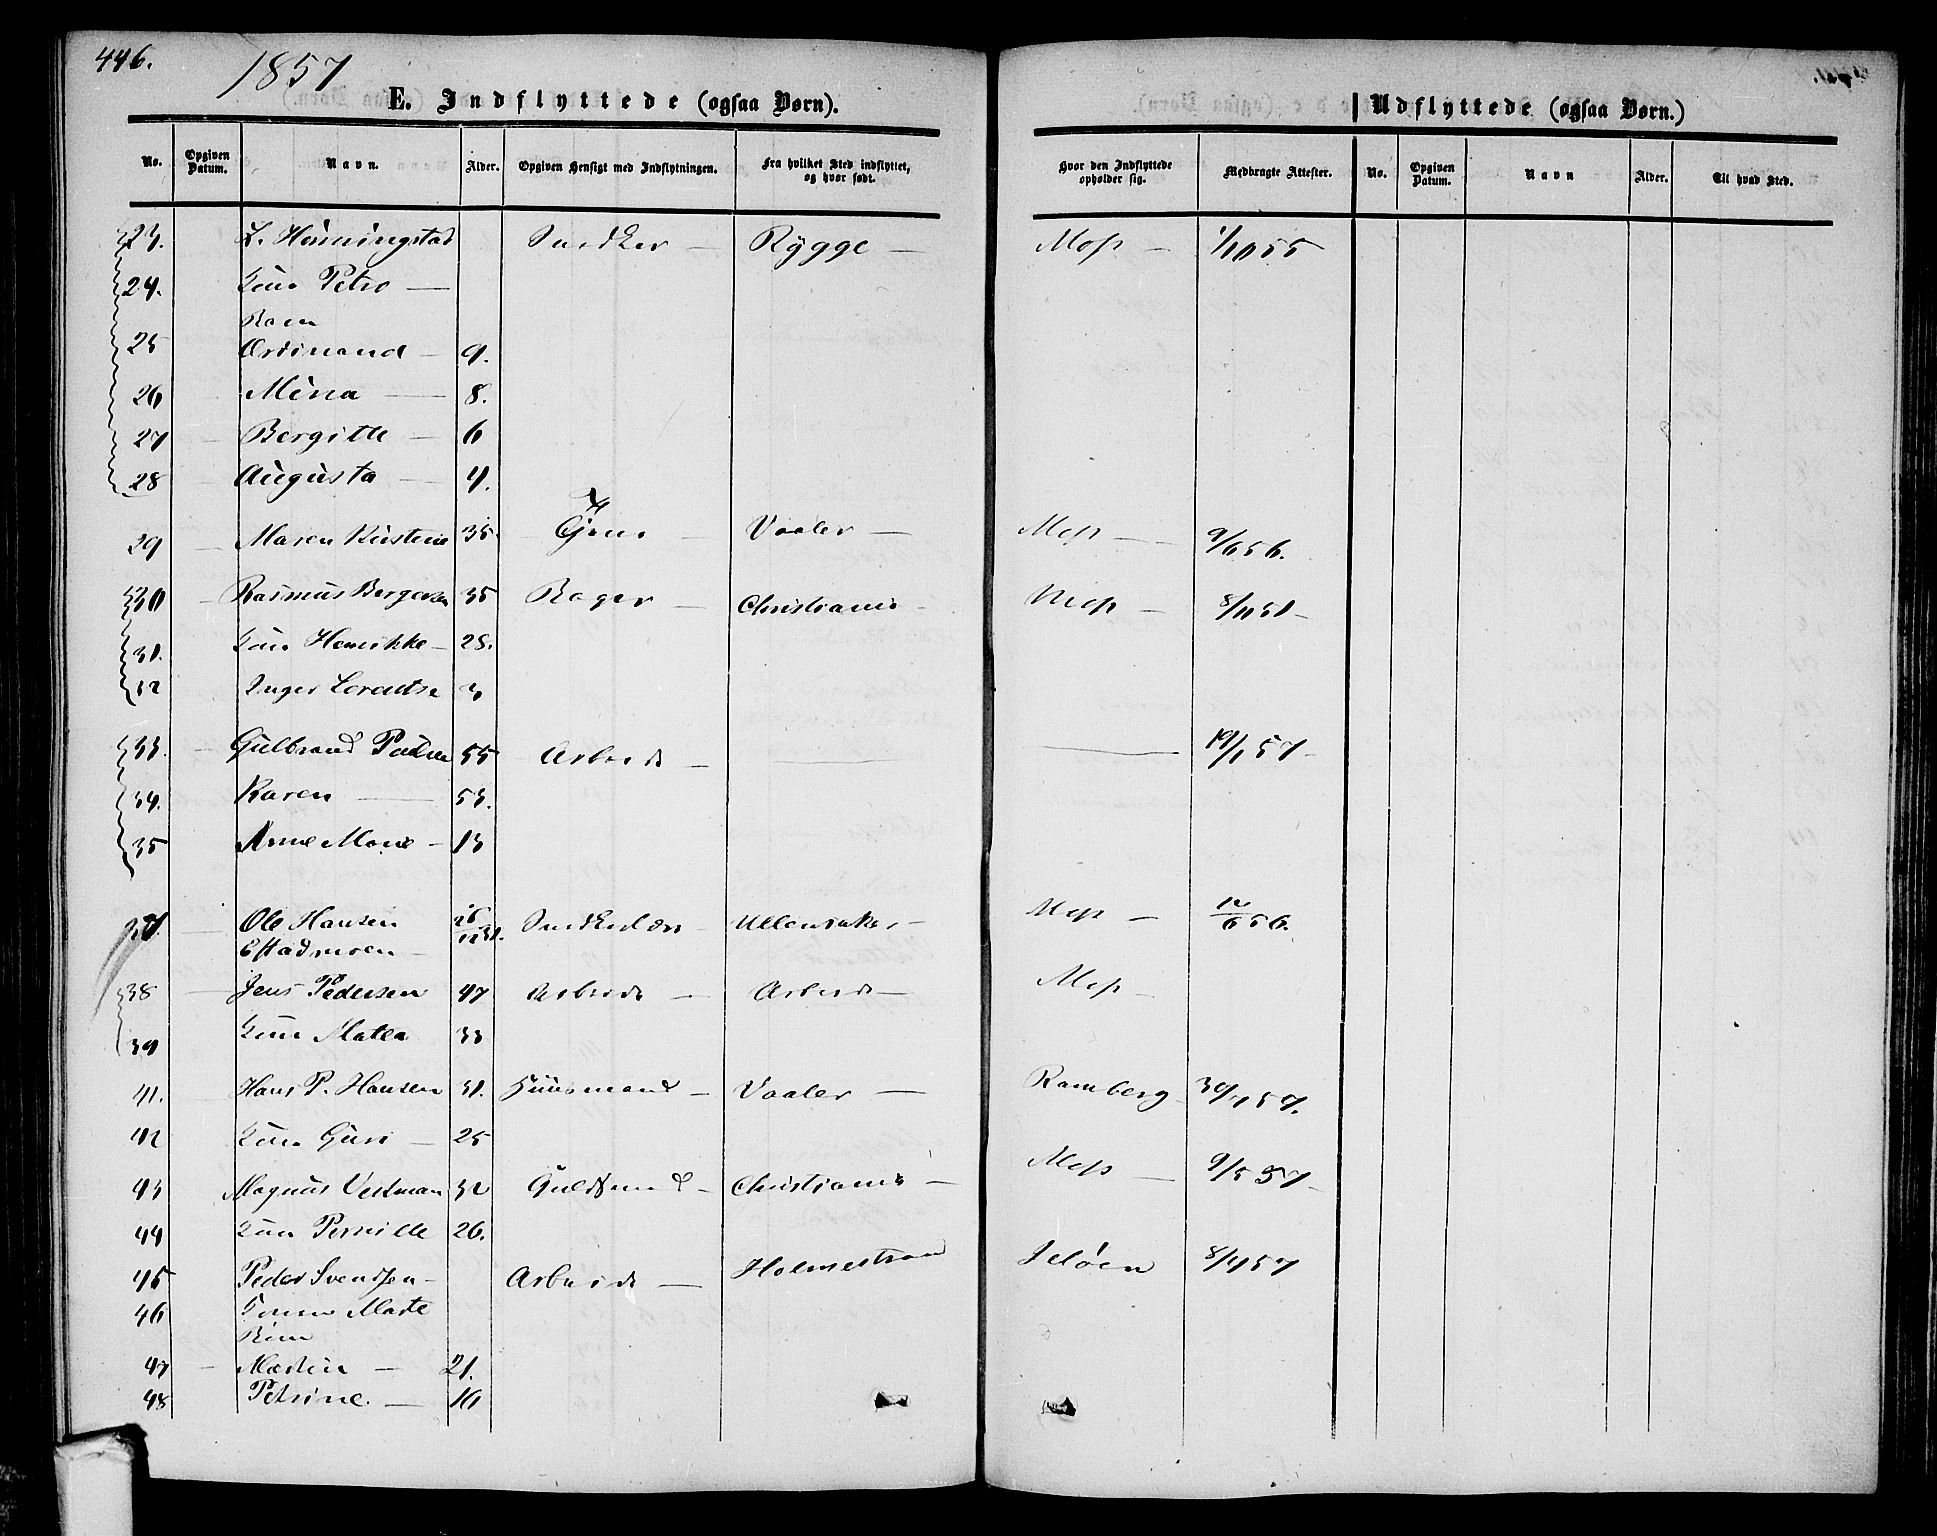 446.
1857
E. Indflyttede (ogsaa Børn).
Udflyttede (ogsaa Børn.)
No. Opgiven Datum. Navn. Alder. Opgiven Hensigt med Indflytningen. Fra hvilket Sted indflyttet, og hvor født. Hvor den Indflyttede opholder sig. Medbragte Attester. No. Opgiven Datum. Navn Alder. Til hvad Sted.
23. L. Henningstad Snedker — Rygge — Moss — 1/10 55
24. Petro —
Børn
25 Ordinand — 9.
26 Mina — 8.
27 — Bergitte — 6
28 Augusta — 4.
29 — Maren Kirstine 35. Vaaler — Moss — 9/6 56.
30 — Rasmus Bergersen 35 Bager — Christiania — Moss — 8/11 51 —
31. Henrikke — 28.
32 Inger Lorentse 3
33. — Gulbrand 55 — Arbeide — 19/1 57 —
34. Karen — 53.
35 Anne Marie — 13
37. Ole Hansen 26/12 31. Ullensaker — Moss — 12/6 56.
Estadmoen —
38 — Jens Pedersen 47 Arbeide — Arbeide — Moss —
39 Matea 33
41. Hans P. Hansen 31. Huusmand — Vaaler — Ramberg 30/ 57.
42 Guri — 25
43 Magnus Vestman 32 Guldsmed — Christiania — Moss — 9/5 57 —
44 Pernille 26.
45 Peder Svendsen — Arbeide — Holmestrand Jeløen 8/4 57
46 Marte
Børn
47 — Martin — 21.
48 Petrine. — 16